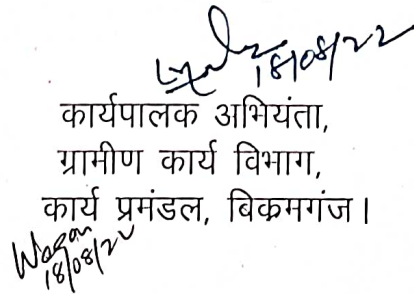 18/08/22
कार्यपालक अभियंता,
ग्रामीण कार्य विभाग,
कार्य प्रमंडल, बिक्रमगंज।
18/08/22